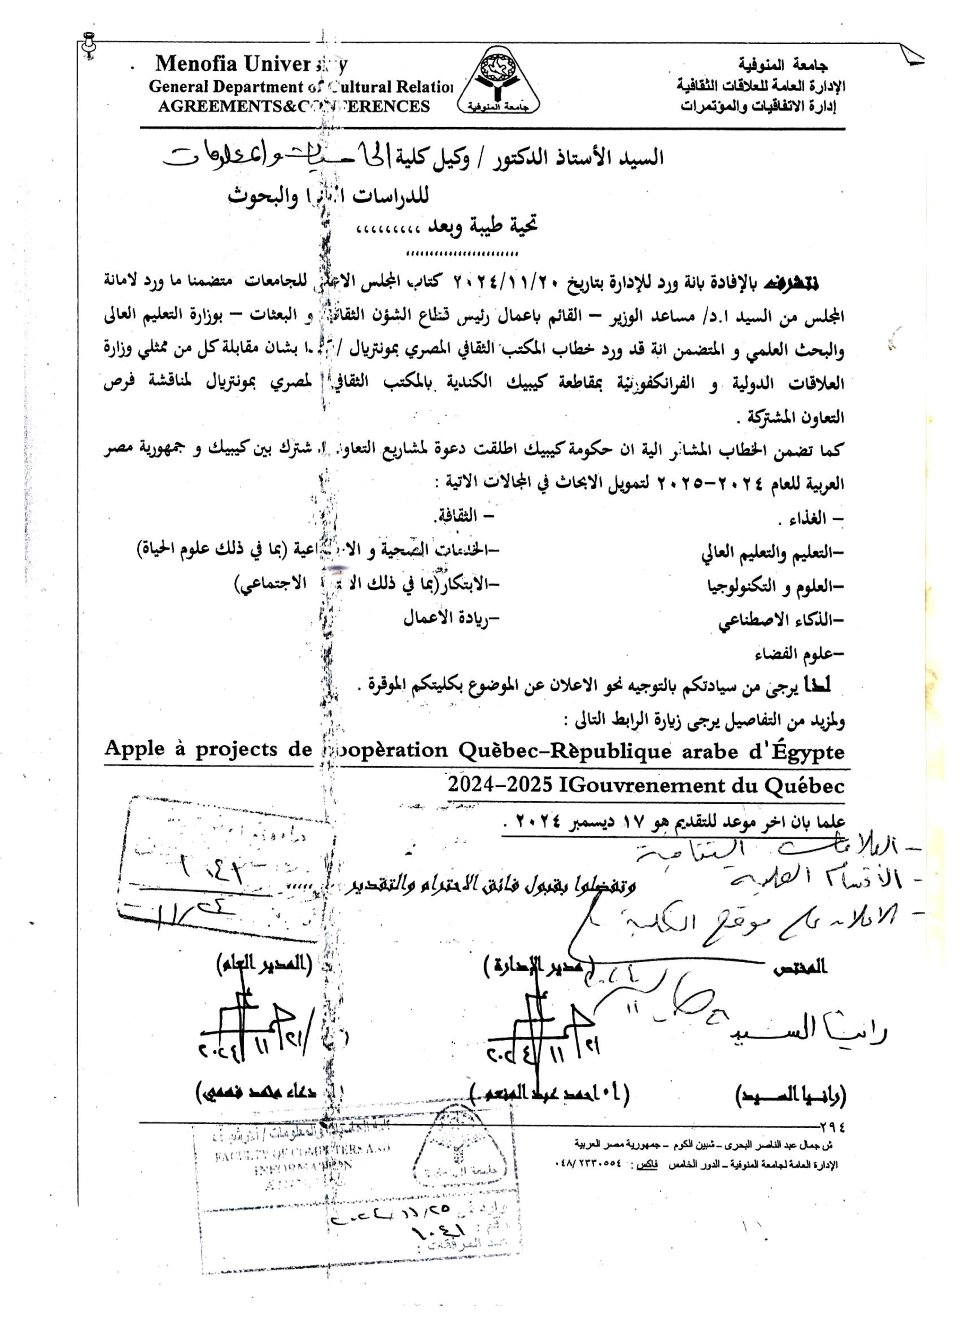 Menofia University
General Department of Cultural Relation
AGREEMENTS&CONFERENCES
جامعة المنوفية
جامعة المنوفية
الإدارة العامة للعلاقات الثقافية
إدارة الاتفاقيات والمؤتمرات
السيد الأستاذ الدكتور / وكيل كلية الحاسبات والمعلومات
للدراسات العليا والبحوث
تحية طيبة وبعد ،،،،،،،،،
نتشرف بالإفادة بانة ورد للإدارة بتاريخ ٢٠٢٤/١١/٢٠ كتاب المجلس الاعلى للجامعات متضمنا ما ورد لامانة
المجلس من السيد ا.د/ مساعد الوزير – القائم باعمال رئيس قطاع الشؤن الثقافية و البعثات – بوزارة التعليم العالى
والبحث العلمي و المتضمن انة قد ورد خطاب المكتب الثقافي المصري بمونتريال / بشان مقابلة كل من ممثلي وزارة
العلاقات الدولية و الفرانكفونية بمقاطعة كيبيك الكندية بالمكتب الثقافي المصري بمونتريال لمناقشة فرص
التعاون المشتركة .
كما تضمن الخطاب المشار الية ان حكومة كيبيك اطلقت دعوة لمشاريع التعاون المشترك بين كيبيك و جمهورية مصر
العربية للعام ٢٠٢٤-٢٠٢٥ لتمويل الابحاث في المجالات الاتية :
– الغذاء . – الثقافة.
–التعليم والتعليم العالي –الخدمات الصحية و الاجتماعية (بما في ذلك علوم الحياة)
–العلوم و التكنولوجيا –الابتكار(بما في ذلك الابتكار الاجتماعي)
–الذكاء الاصطناعي –ريادة الاعمال
–علوم الفضاء
لذا يرجى من سيادتكم بالتوجيه نحو الاعلان عن الموضوع بكليتكم الموقرة .
ولمزيد من التفاصيل يرجى زيارة الرابط التالى :
Apple à projects de cooopèration Quèbec–Rèpublique arabe d'Égypte
2024–2025 IGouvrenement du Québec
علما بان اخر موعد للتقديم هو ١٧ ديسمبر ٢٠٢٤ .
- العلاقات الثقافية
- الأقسام العلمية
- الاعلان على موقع الكلية
وتفضلوا بقبول فائق الاحترام والتقدير ،،،،،
١٠٤١
١١/٢٤
المختص (مدير الإدارة) (المدير العام)
رانيا السيد
٢٠٢٤/١١/٢١
٢٠٢٤/١١/٢١
(رانيا السيد) (أ. احمد عبد المنعم) دعاء محمد فهمى)
٢٩٤
ش جمال عبد الناصر البحرى – شبين الكوم – جمهورية مصر العربية
الإدارة العامة لجامعة المنوفية – الدور الخامس فاكس : ٠٤٨/٢٢٣٠٥٥٤
FACULTY OF COMPUTERS AND
INFORMATION
جامعة المنوفية
وارد في ٢٠٢٤/١١/٢٥
رقم : ١٠٤١
عدد المرفقات :